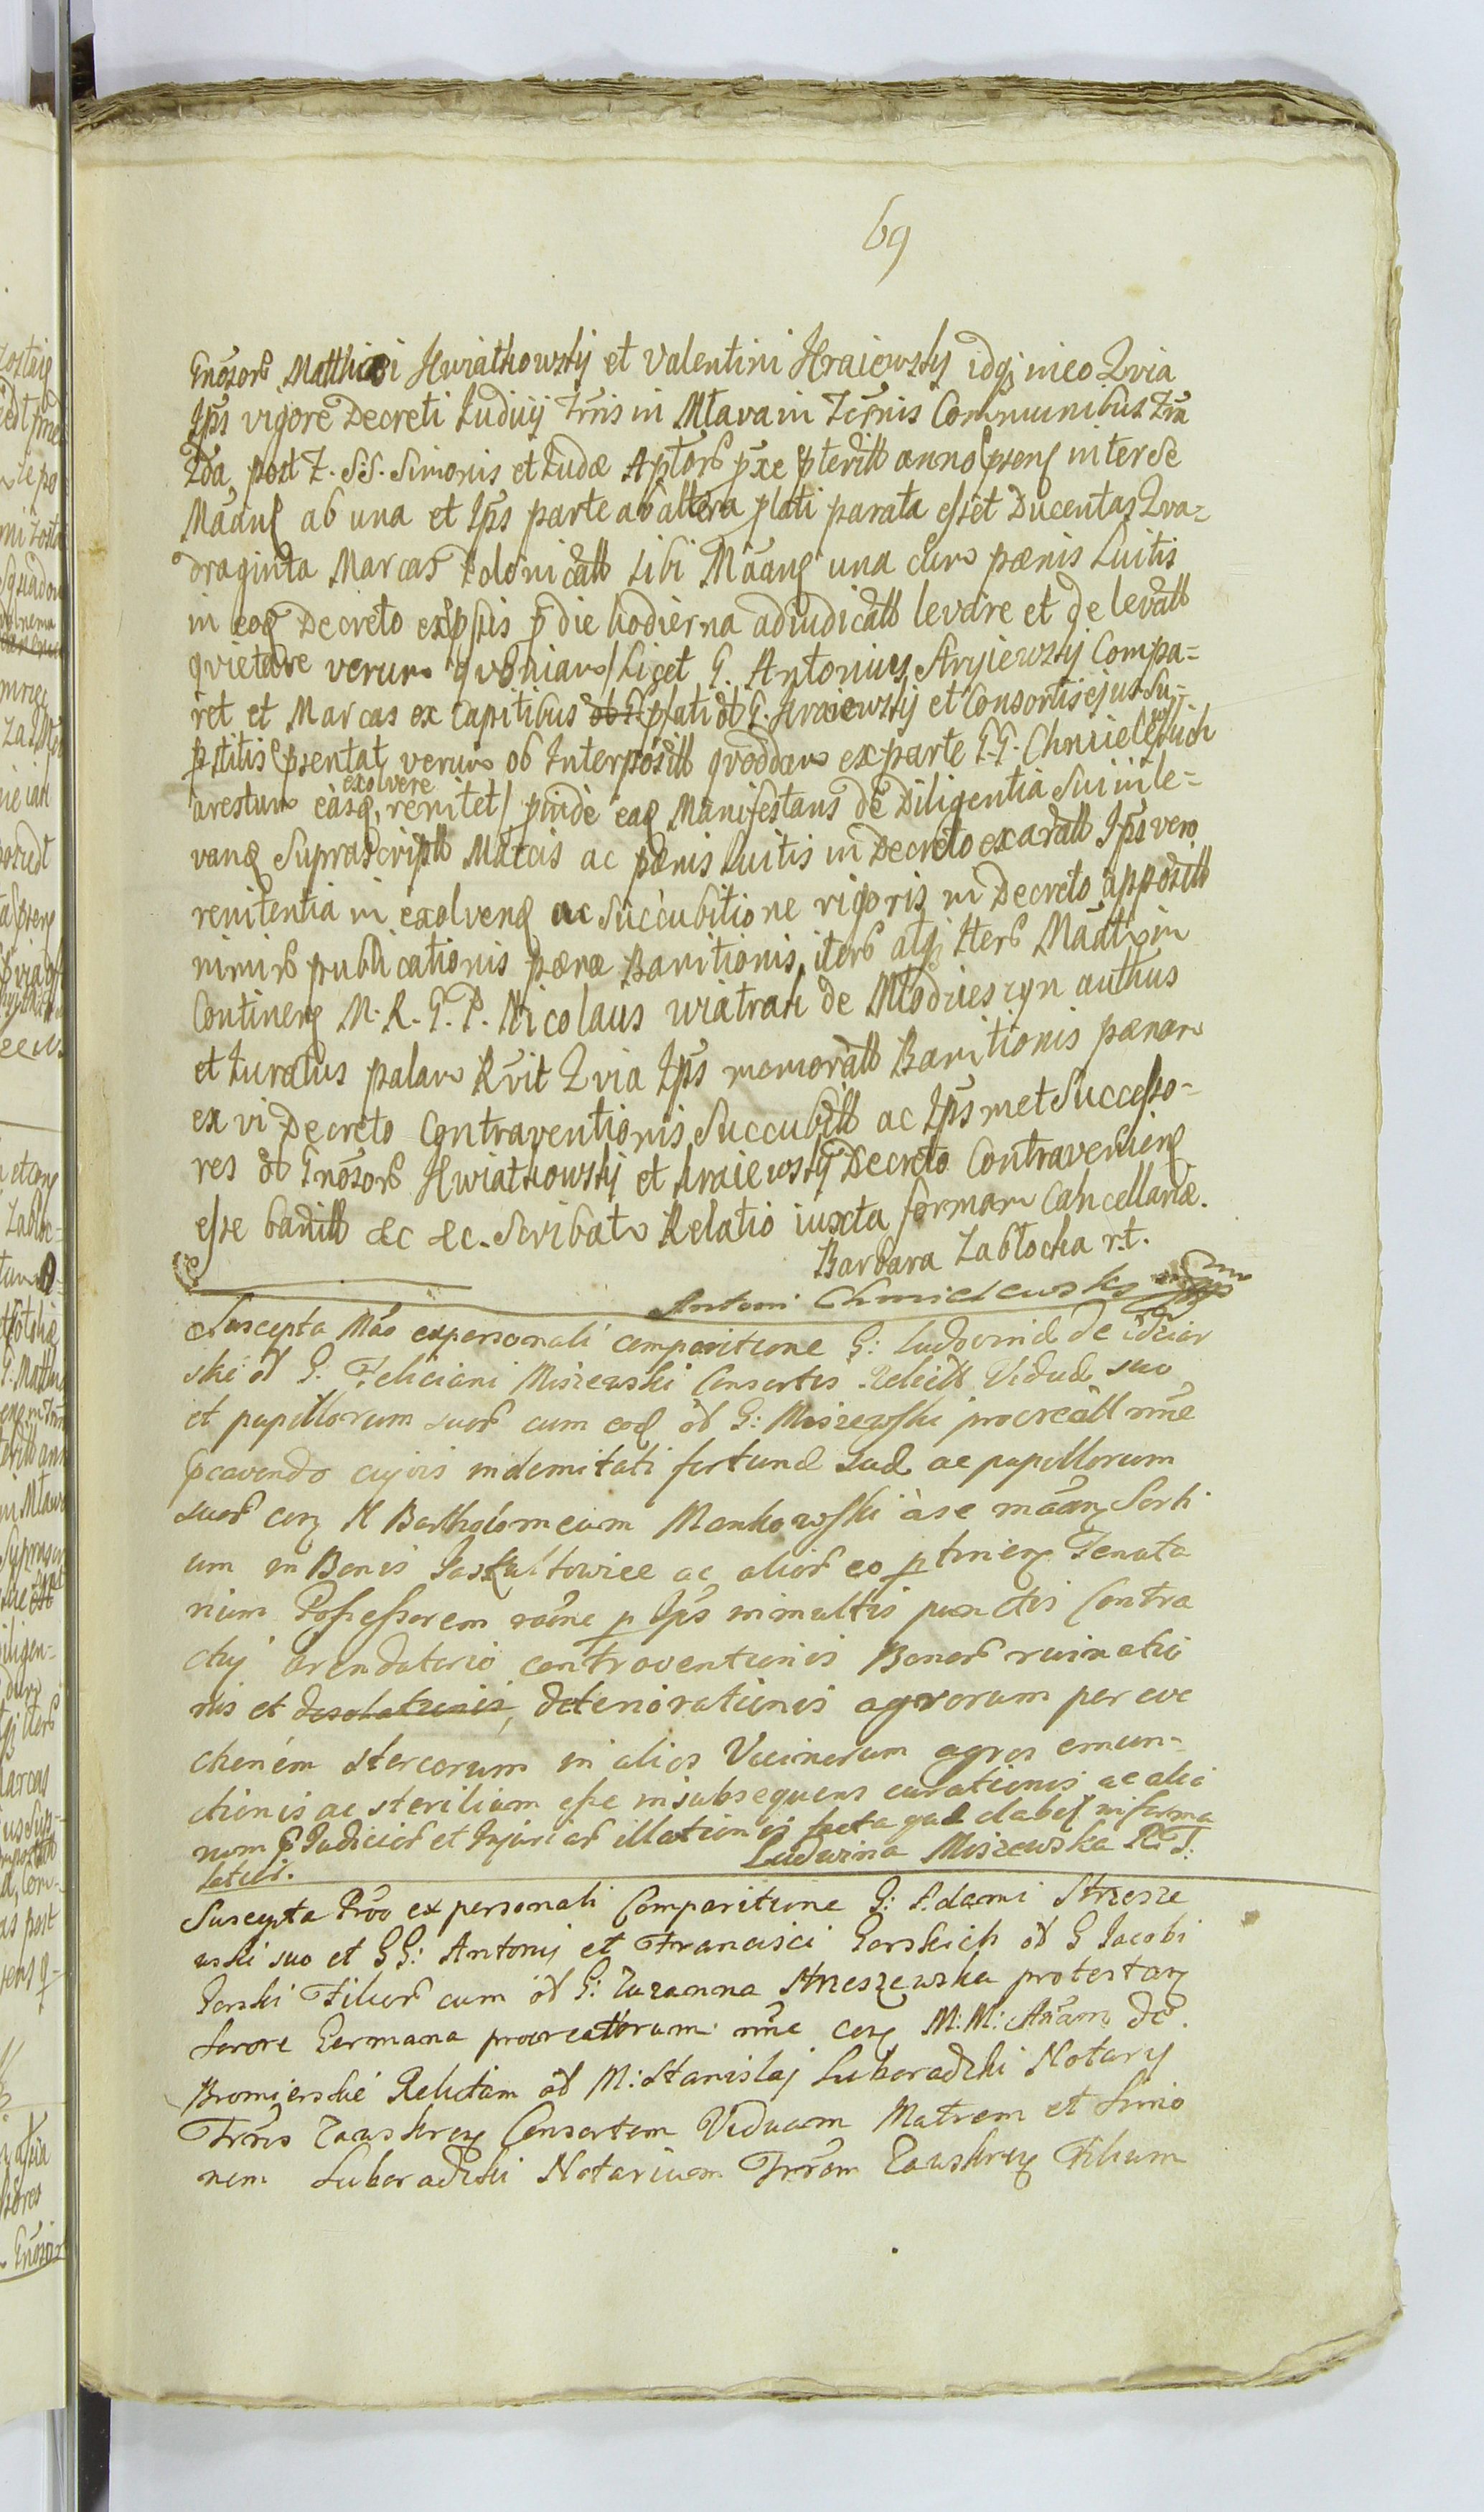 69
Gnösorƀ Matthiæi Kwiatkowsky et Valentini Kraiewsky idq; in eo Qvia
Ips vigore Decreti Judicij Trris in Mtava in Termis Communibus Tra
Fda post F. S.S. Simonis et Judæ Aptorƀ pxe pteritt anno psenς inter se
Maanς ab una et Ips parte ab altera plati parata esset Ducentas Qva=
draginta Marcas Polonicatt sibi Maanς una cum pænis Luitis
in eoς Decreto expssis p die hodierna adiudicatt levare et de levatt
qvietare verum qvoniam / Licet G. Antonius Stryiewsky Compa=
ret et Marcas ex Capitibus plati ot G. Kraiewsky et Consortis ejus Su-
pstitis psentat verum ob Interpositt qvoddam ex parte G.G. Chmielewskich
arestum easq, exolvere renitet / proinde eaς Manifestans de Diligentia Sui in le=
vanς Suprascriptt Marcis ac pænis Luitis in Decreto exaratt Ips vero
renitentia in exolvenς ac Succubitione rigoris in Decreto appositt
nimirƀ publicationis pænæ Banitionis, iterƀ atq; iterƀ Maatr in
Continenς M. R. G. P. Nicolaus Wiatrak de Mlodzieszyn authus
et Juratus palam Rvit Qvia Ips memoratt Banitionis pænam
ex vi Decreto Contraventionis Succubitt ac Ips met Successo-
res ot Gnösorƀ Kwiatkowsky et Kraiewsky Decreto Contravenienς
esse banitt &c &c. Scribatr Relatio iuxta formam Cancellariæ.
Barbara Zabłocka r.t.
Antoni Chmielewski
Suscepta Mäo ex personali comparitione G: Ludovinæ de
ski ot G. Feliciani Miszewski Consortis Relictt Viduæ suo
et pupillorum suorƀ cum eoς ot G: Miszewski procreatt nne
pcavendo cujvis indemitati fortunæ suæ ac pupillorum
suorƀ conς N Bartholomeum Mankowski à se maanς Sorti
um in Bonis Jaskultowice ac aliorƀ eo ptinenς Tenuta
rium Possessorem raone p Ips in multis punctis Contra
ctuj arendatorio contraventionis Bonorƀ ruinatio
nis et desolationis, deteriorationis agrorum per eve
chenem stercorum in alios Vicinorum agros emun-
ctionis ac sterilium esse in subsequens curationis ac alio
rum p Judiciorƀ et Injuriarƀ illationis facta quæ dabes in forma
latiori.
Ludwina Miszewska R. T:
Suscepta Pröo ex personali Comparitione G: Adami Strzesze
wski suo et GG: Antonij et Francisci Gorskich ot G Jacobi
Gorski Filiorƀ cum ot G: Zuzanna Strzeszewska protestanς
Sorore Germana procreattorum nne conς M: M: Annam de
Bromierskié Relictam ot M: Stanislaj Luberadzki Notary
Trris Zawskrenς Consortem Viduam Matrem et Simo
nem Luberadzki Notarium Trrem Zawskrenς Filium